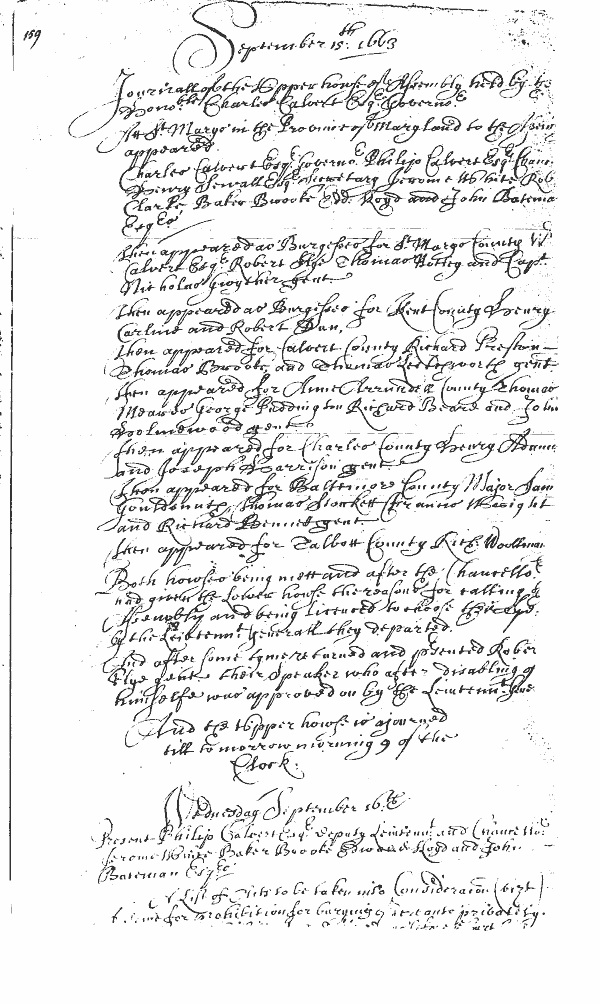 159
September 15th: 1663
Journall of the Upper house of Assembly held by the
Honoble Charles Calvert Esqr Governor
Att St Maryes in the Province of Maryland to the
appeared
Charles Calvert Esqr Governor Philip Calvert Esqr
Henry Sewall Esqr Secretary Jerome White Rob
Clarke Baker Brooke Edd: Lloyd and John Batema
Esqrs
then appeared as Burgesses for St Maryes County
Calvert Esqr Robert Slye Thomas Notley and Capt
Nicholas Gwyther gent
Then appeared as Burgesses for Kent County Henry
Carline and Robert Dun,
then appeared for Calvert County Richard Preston
Thomas Brooke and Thomas gent
then appeared for Anne Arrundell County Thomas
Meares George Puddington Richard Beard and John
Homewood gent
then appeared for Charles County Henry Adams
and Joseph Harrison gent
then appeared for Baltimore County Major Sam
Gouldsmith, Thomas Stockett Francis Wright
and Richard Bennet gent
then appeared for Talbott County Rich: Woolman
Both howses being mett and after the Chancellor
had given the Lower house the reasons for calling
Assembly and being Licenced to choose their
by the Leiutennt Generall they departed.
And after some tyme returned and psented Rober
Slye gent their Speaker who after disabling of
himselfe was approved on by the Leiutennt
And the Upper howse is ajourned
till tomorrow morning 9 of the
Clock.
Wednesday September 16th
Present Philip Calvert Esqr deputy Leiutent and Chancellor
Jerome White Baker Brooke Edward Lloyd and John
Bateman Esqrs
A List of Acts to be taken into Consideracon (vizt)
for prohibition for burying of servants privately.